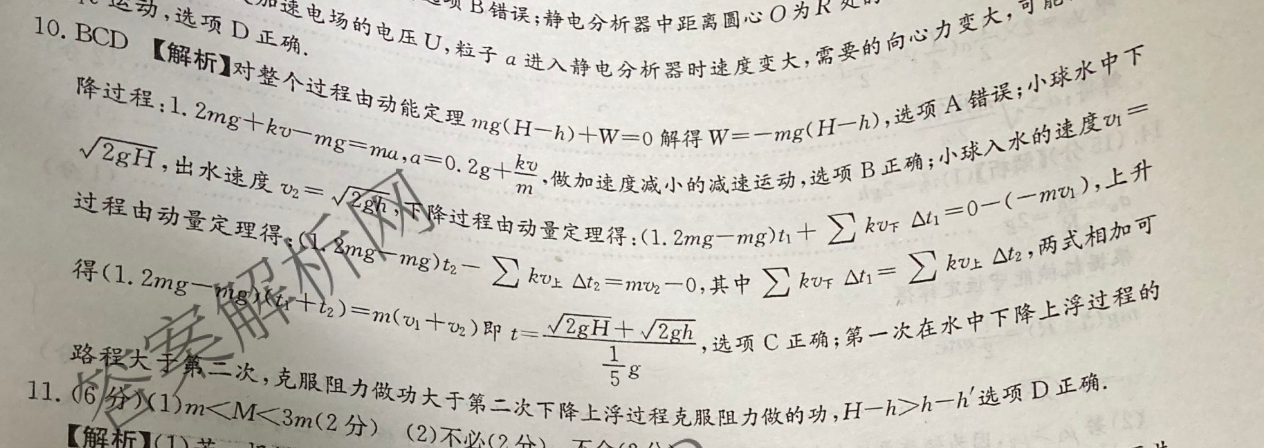 运动,选项 D 正确.
加速电场的电压U,粒子 a 进入静电分析器时速度变大,需要的向心力变大,可能
选项 B 错误;静电分析器中距离圆心 O 为 R
10. BCD 【解析】对整个过程由动能定理 mg(H-h)+W=0 解得 W=-mg(H-h),选项 A 错误;小球水中下
降过程:1.2mg+kv-mg=ma,a=0.2g+\frac{kv}{m},做加速度减小的减速运动,选项 B 正确;小球入水的速度v₁=
√(2gH),出水速度 v₂=√(2gh),下降过程由动量定理得:(1.2mg-mg)t₁+∑kv下 Δt₁=0-(-mv₁),上升
过程由动量定理得:(1.2mg-mg)t₂-∑kv上 Δt₂=mv₂-0,其中∑kv下 Δt₁=∑kv上 Δt₂,两式相加可
得(1.2mg-mg)(t₁+t₂)=m(v₁+v₂)即 t=\frac{√(2gH)+√(2gh)}{\frac{1}{5}g},选项 C 正确;第一次在水中下降上浮过程的
路程大于第二次,克服阻力做功大于第二次下降上浮过程克服阻力做的功,H-h>h-h′选项 D 正确.
11. (6分)(1)m<M<3m(2分) (2)不必(2分)
【解析】(1)
答案解析网